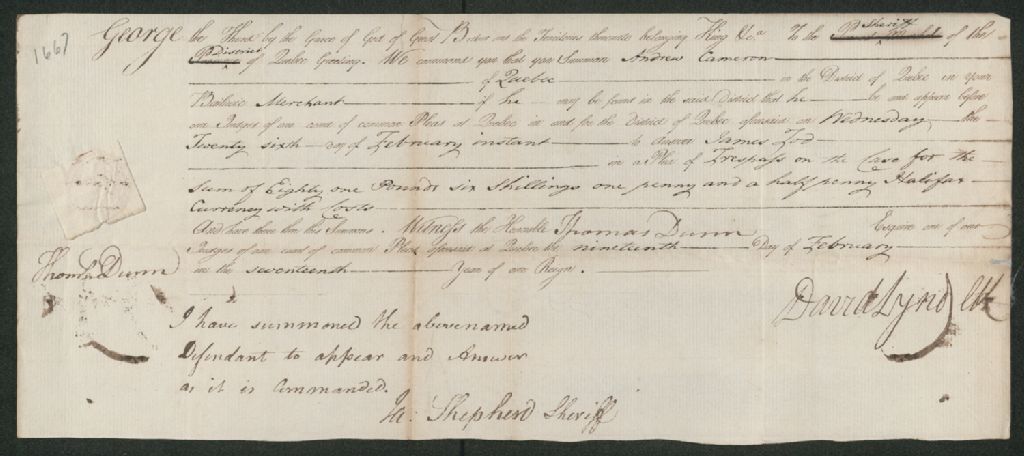 1667
George the Third by the Grace of God of Great Britain and the Territories thereunto belonging King &ca To the Sheriff of the
District of Quebec Greeting. We command you that you Summon Andrew Cameron
of Quebec in the District of Quebec in your
Bailiwic Merchant if he may be found in the said District that he be and appear before
our Judges of our court of common Pleas at Quebec in and for the District of Quebec aforesaid on Wednesday the
Twenty sixth day of February instant to answer James Tod
in a Plea of Trespass on the Case for the
Sum of Eighty one Pounds six Shillings one penny and a half penny Halifax
Currency with Costs
And have there then this Summons. Witness the Honorable Thomas Dunn Esquire one of our
Judges of our court of common Pleas aforesaid at Quebec the nineteenth Day of February
in the seventeenth Year of our Reign.
Thomas Dunn
David Lynd Clk
I have summoned the abovenamed
Defendant to appear and Answer
as it is Commanded.
Ja: Shepherd Sheriff